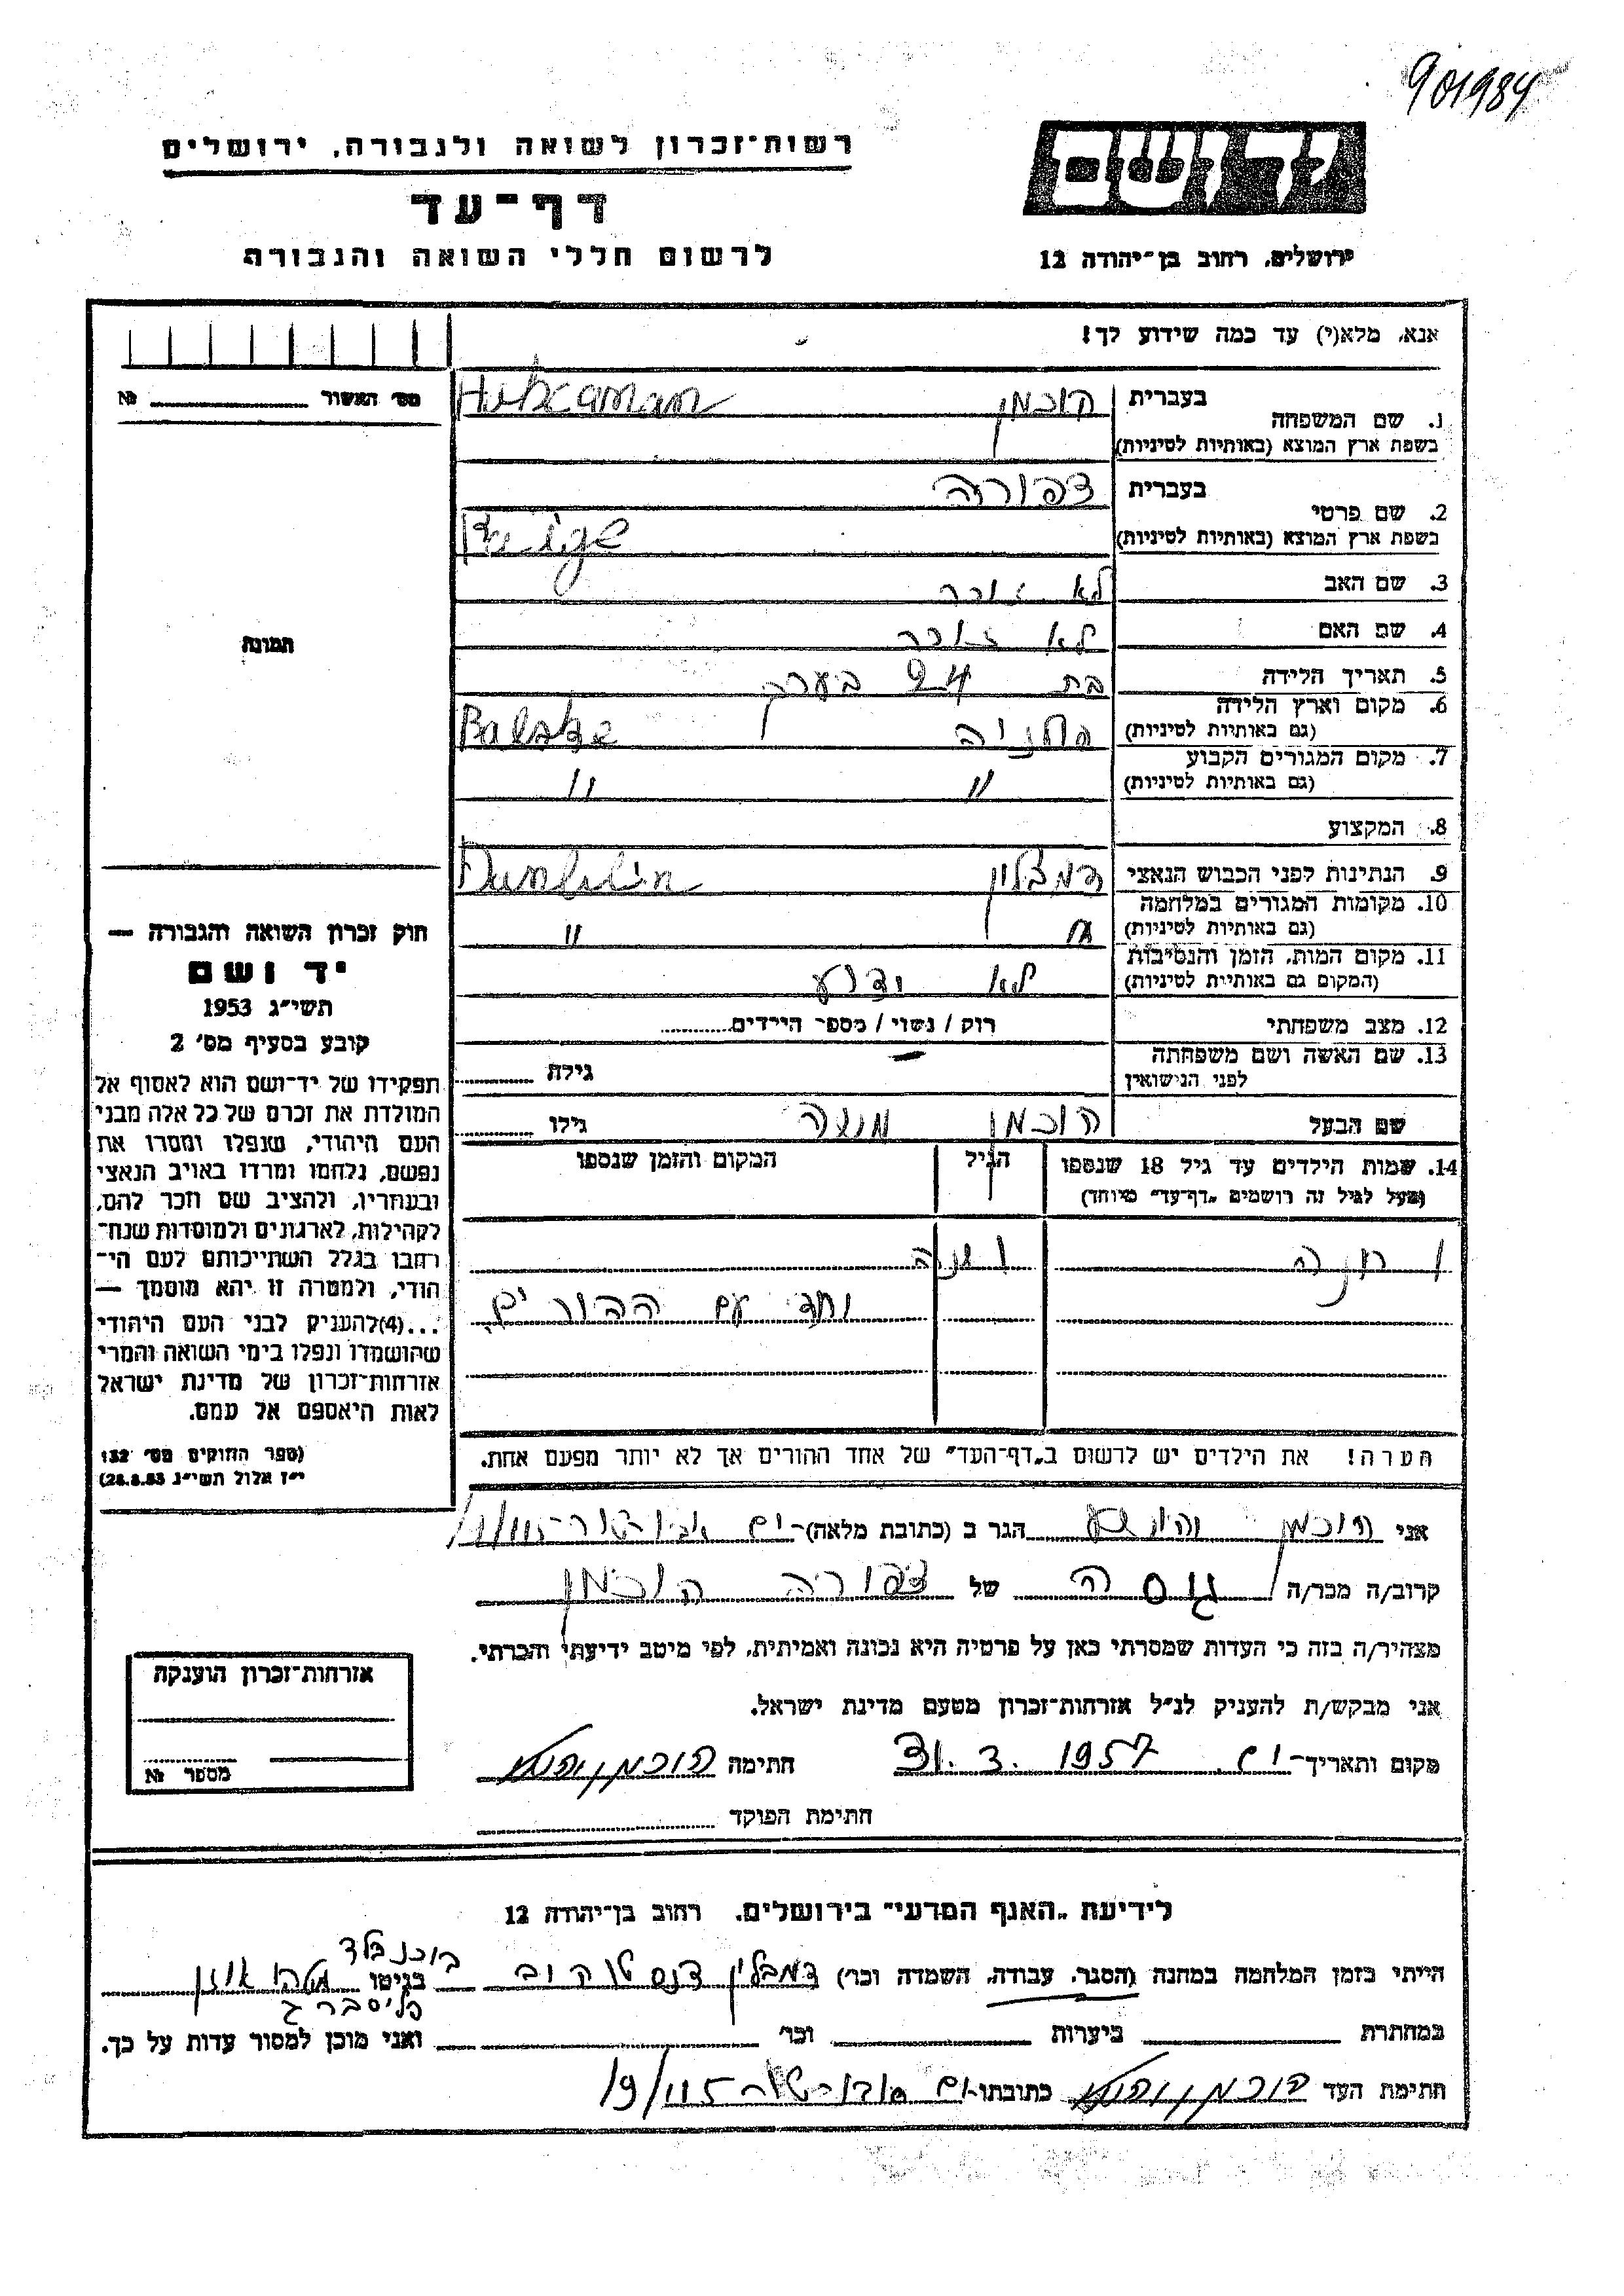 901984
יד ושם
רשות־זכרון לשואה ולגבורה, ירושלים
דף־עד
לרשום חללי השואה והגבורה
ירושלים, רחוב בן־יהודה 12
אנא, מלא(י) עד כמה שידוע לך!
מס׳ האשור № ________
תמונה
1. שם המשפחה
בעברית הוכמן
בשפת ארץ המוצא (באותיות לטיניות)
2. שם פרטי
בעברית צפורה
בשפת ארץ המוצא (באותיות לטיניות)
3. שם האב לא זוכר
4. שם האם לא זוכר
5. תאריך הלידה בת 24 בערך
6. מקום וארץ הלידה
(גם באותיות לטיניות)
7. מקום המגורים הקבוע " "
(גם באותיות לטיניות)
8. המקצוע
9. הנתינות לפני הכבוש הנאצי דמבלין Dumblin
10. מקומות המגורים במלחמה " "
(גם באותיות לטיניות)
11. מקום המות, הזמן והנסיבות לא ידוע
(המקום גם באותיות לטיניות)
12. מצב משפחתי רוק / נשוי / מספר הילדים
13. שם האשה ושם משפחתה
לפני הנישואין גילה
שם הבעל הוכמן משה גילו
14. שמות הילדים עד גיל 18 שנספו הגיל המקום והזמן שנספו
(מעל לגיל זה רושמים „דף־עד" מיוחד)
1 חנה 1 שנה
יחד עם ההורים
הערה! את הילדים יש לרשום ב„דף־העד" של אחד ההורים אך לא יותר מפעם אחת.
חוק זכרון השואה והגבורה —
יד ושם
תשי״ג 1953
קובע בסעיף מס׳ 2
תפקידו של יד־ושם הוא לאסוף אל
המולדת את זכרם של כל אלה מבני
העם היהודי, שנפלו ומסרו את
נפשם, נלחמו ומרדו באויב הנאצי
ובעוזריו, ולהציב שם וזכר להם,
לקהילות, לארגונים ולמוסדות שנח־
רבו בגלל השתייכותם לעם הי־
הודי, ולמטרה זו יהא מוסמך —
...(4) להעניק לבני העם היהודי
שהושמדו ונפלו בימי השואה והמרי
אזרחות־זכרון של מדינת ישראל
לאות היאספם אל עמם.
(ספר החוקים מס׳ 132
י״ז אלול תשי״ג 28.8.53)
אני הוכמן יהושע הגר ב (כתובת מלאה)
קרוב/ה מכר/ה גיסה של צפורה הוכמן
מצהיר/ה בזה כי העדות שמסרתי כאן על פרטיה היא נכונה ואמיתית, לפי מיטב ידיעתי והכרתי.
אני מבקש/ת להעניק לנ״ל אזרחות־זכרון מטעם מדינת ישראל.
מקום ותאריך 31.3.1957 חתימה הוכמן יהושע
חתימת הפוקד
אזרחות־זכרון הוענקה
מספר №
לידיעת „האגף המדעי" בירושלים, רחוב בן־יהודה 12
הייתי בזמן המלחמה במחנה (הסגר, עבודה, השמדה וכר׳) דמבלין צנסטוקוב בוכנבלד
בגיטו
במחתרת ____ ביערות ____ וכר׳ ____ ואני מוכן למסור עדות על כך.
חתימת העד הוכמן יהושע כתובתו